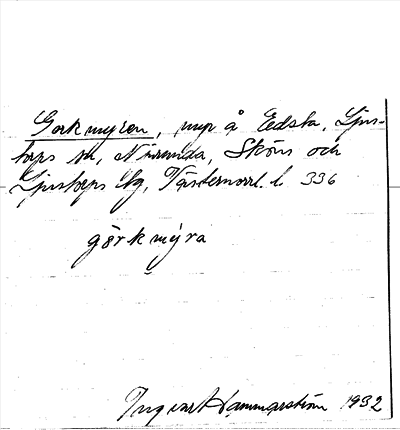 Gorkmyren, myr å Edsta, Ljus-
torps sn, N
Sköns och
Ljustorps tg, Västernorrl. l. 336
görkmýra
Ingvar Hammarström 1932